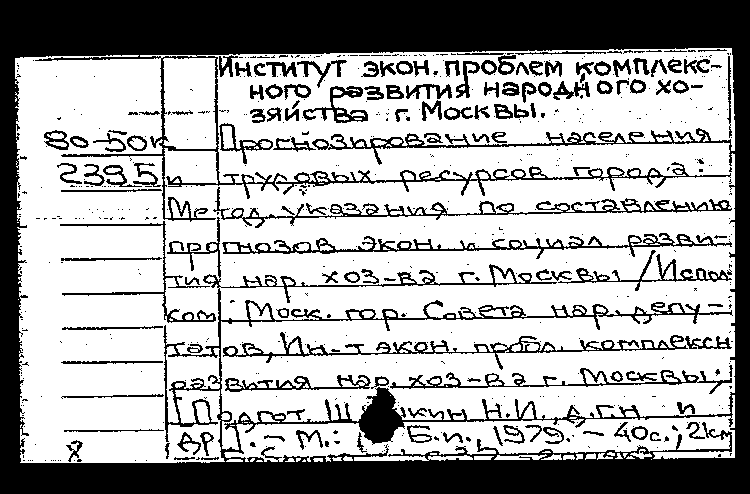 Институт экон. проблем комплекс-
ного развития народного хо-
зяйства г. Москвы.
80-50к Прогнозирование населения
2395 и трудовых ресурсов города:
Метод. указания по составлению
прогнозов экон. и социал разви-
тия нар. хоз-ва г. Москвы /Испол
ком. Моск. гор. Совета нар. депу-
татов, Ин-т экон. пробл. комплексн
развития нар. хоз-ва г. Москвы;
[Подгот. Н.И., д.г.н. и
др]. - М.: Б.и., 1979. - 40с.; 21см